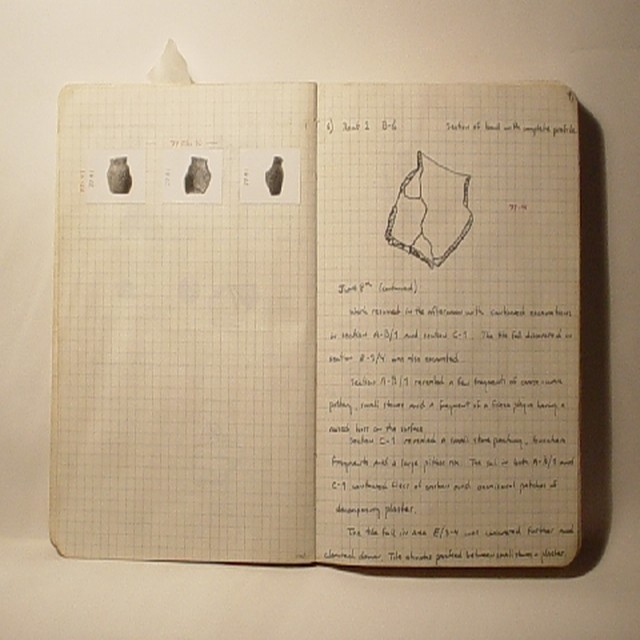 6) Tent 1 B-6 Section of bowl with complete profile
June 8th (continued)
Work resumed in the afternoon with continued excavations
in section A-B/1 and section C-1. The tile fall discovered in
section was also excavated.
Section A-B/1 revealed a few fragments of coarse-ware
pottery, small stones and a fragment of a having a
raised boss on the surface.
Section C-1 revealed a small stone
fragments and a large pithos rim. The soil in both A-B/1 and
C-1 contained flecs of carbon and occasional patches of
decomposing plaster.
The tile fall in area E/3-4 was uncovered further and
cleaned down. Tile between small stones + plaster.